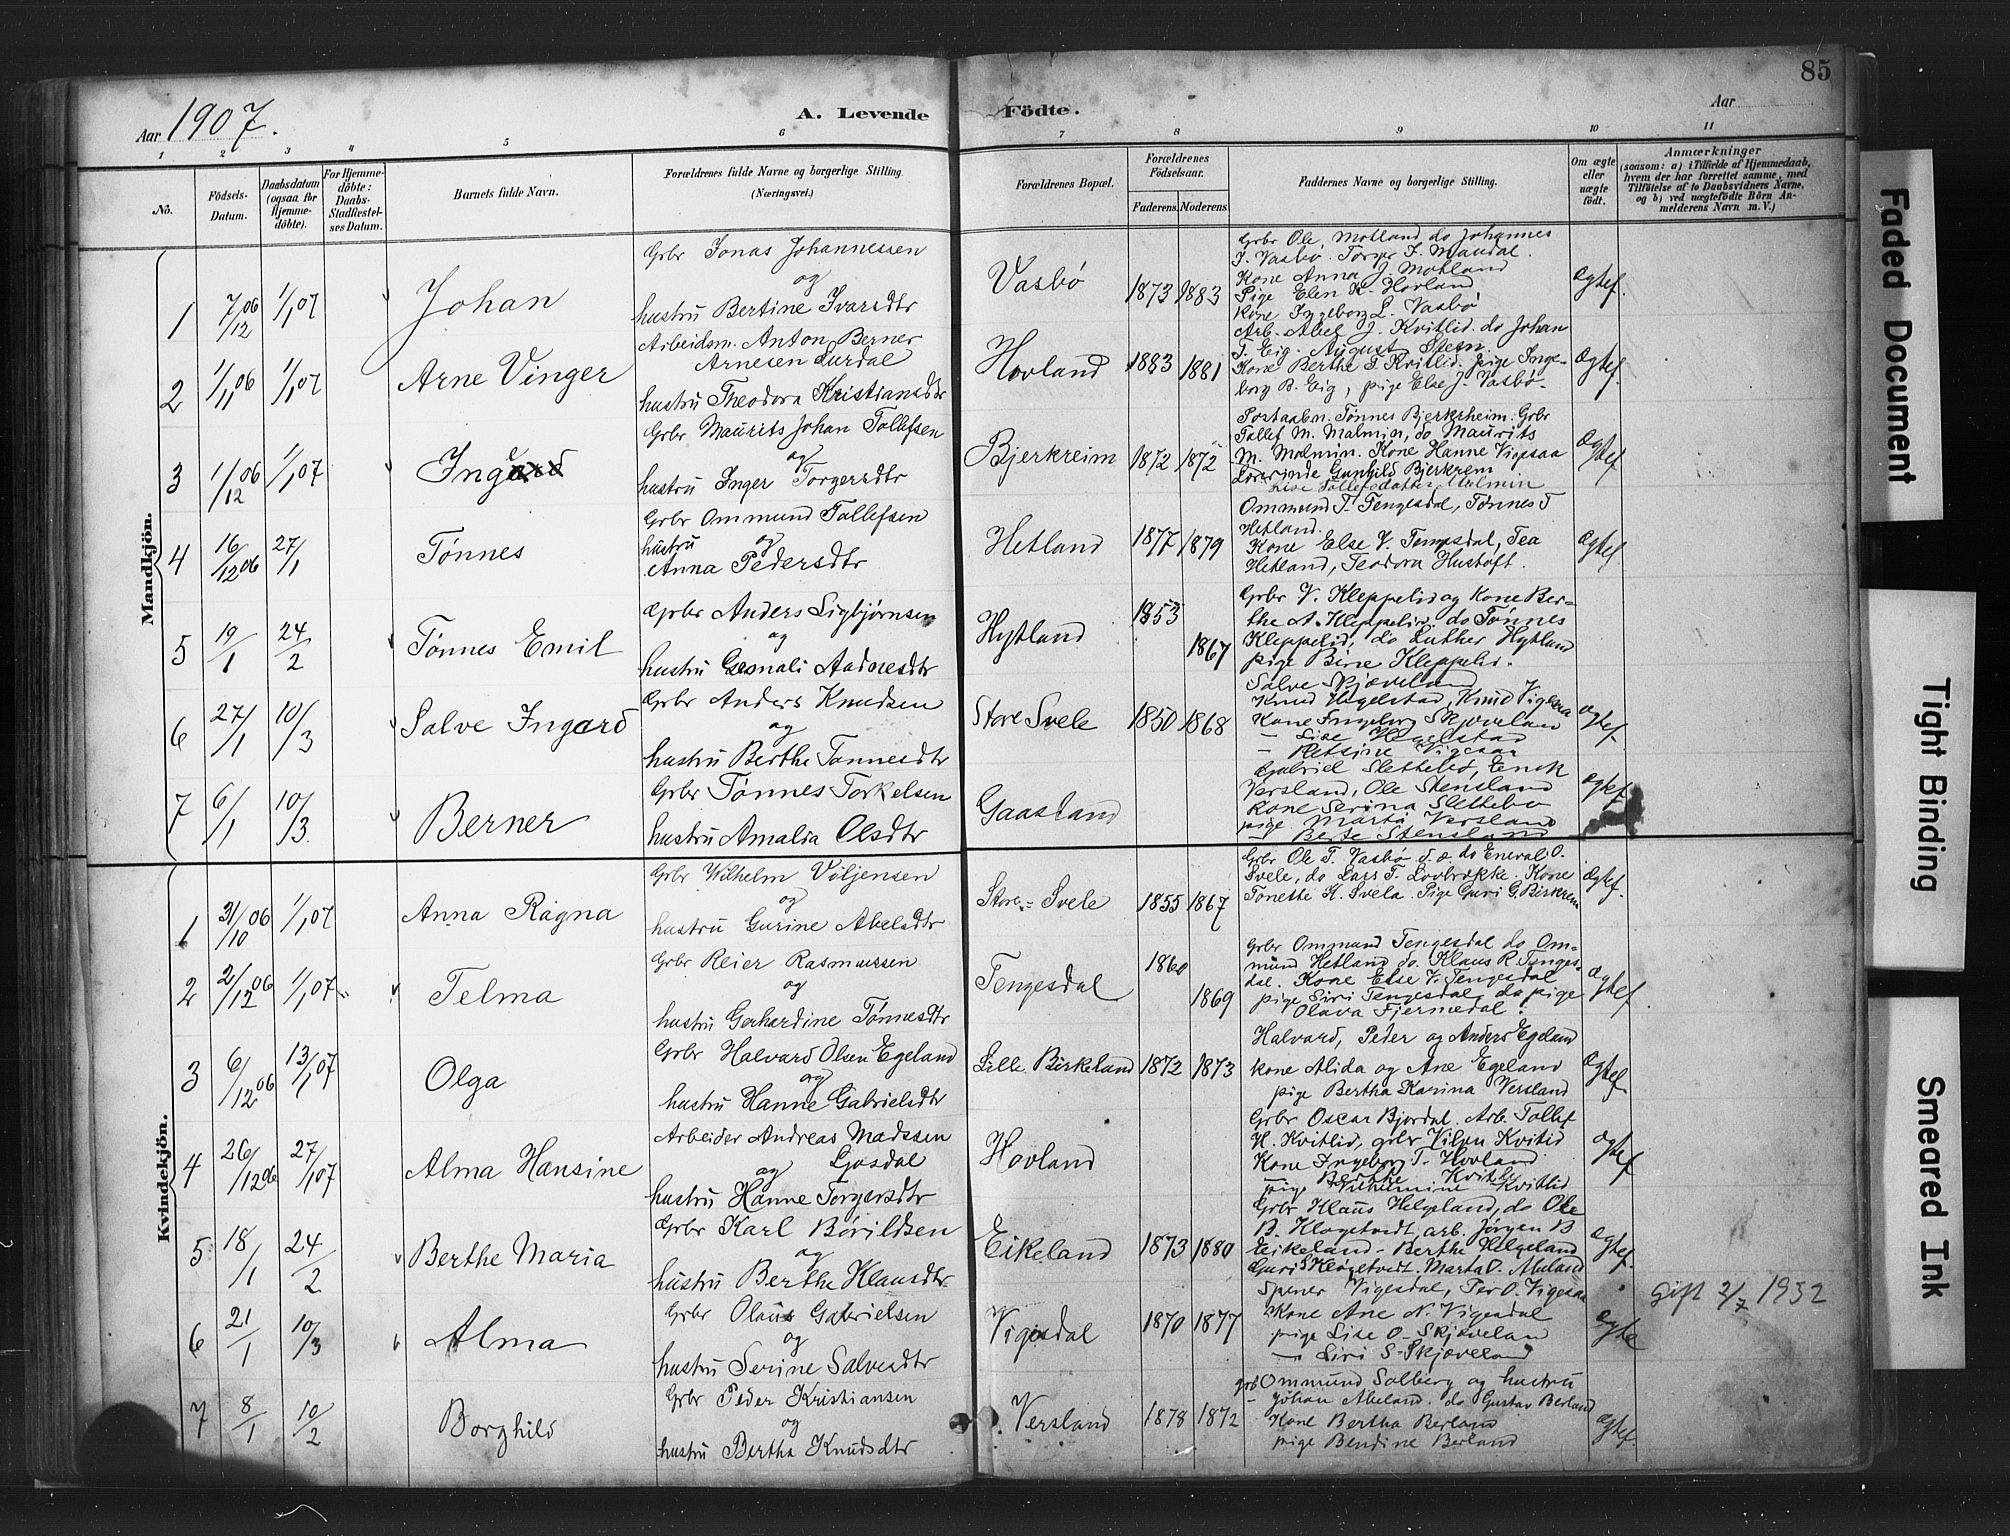 85
Aar 1907.
A. Levende Födte.
Aar
1 2 3 4 5 6 7 8 9 10 11
No.
Födsels-Datum.
Daabsdatum (ogsaa for Hjemme-döbte).
For Hjemme-döbte: Daabs-Stadfestel-ses Datum.
Barnets fulde Navn.
Forældrenes fulde Navne og borgerlige Stilling. (Næringsvei.)
Forældrenes Bopæl.
Forældrenes Födselsaar.
Faderens. Moderens.
Faddernes Navne og borgerlige Stilling.
Om ægte eller uægte födt.
Anmærkninger
(saasom: a) i Tilfælde af Hjemmedaab, hvem der har forrettet samme, med Tilföielse af to Daabsvidners Navne, og b) ved uægtefödte Börn An-melderens Navn m. V.)
Mandkjön.
1 7/12 06 1/1 07 Johan
Grbr Jonas Johannessen
og
hustru Bertine Ivarsdtr
Vasbö 1873 1883
Grbr Ole Motland do Johannes
J. Vasbö. Torger T. Maudal.
Kone Anna J. Motland
Pige Elen K. Hovland
Kone Ingeborg L. Vasbö
Ægtef.
2 1/11 06 1/1 07 Arne Vinger
Arbeidsm. Anton Berner
Arnesen Lurdal
hustru Theodora Kristiansdtr
Hovland 1883 1881
Arb. Abel J. Kvitlid. do Johan
T. Eig. August Steen.
Kone Berthe T. Kvitlid. pige Inge-
borg B. Eig, pige Else J. Vasbö.
Ægtef.
3 1/12 06 1/1 07 Ingard
Grbr Maurits Johan Tollefsen
og
hustru Inger Torgersdtr
Bjerkreim 1872 1872
Postaabn. Tönnes Bjerkrheim. Grbr
Tollef M. Malmin, do Maurits
M. Malmin. Kone Hanne Vigesaa
Lærerinde Gunhild Bjerkrem
Lise Tollefsdatter Malmin
Ægtef
4 16/12 06 27/1 Tønnes
Grbr Ommund Tollefsen
hustru og
Anna Pedersdtr
Hetland 1877 1879
Ommund T. Tengesdal, Tønnes T
Hetland.
Kone Else V. Tengesdal, Tea
Hetland, Teodora Hustoft.
Ægtef
5 19/1 24/2 Tønnes Emil
Grbr Anders Sigbjørnsen
og
hustru Gesnali Aadnesdtr
Hytland 1853 1867
Grbr V. Kleppelid og Kone Ber-
the A. Kleppelid. do Tønnes
Kleppelid, do Luther Hytland
pige Birte Kleppelid.
6 27/1 10/3 Salve Ingard
Grbr Anders Knudsen
og
hustru Berthe Tønnesdtr
Store Svele 1850 1868
Salve Skjæveland
Knud Hegelstad, Knud Vigesaa
Kone Ingeborg Skjæveland
— Lise Hegelstad
— Retsine Vigesaa
ægtef
7 6/1 10/3 Berner
Grbr Tønnes Torkelsen
hustru Amalia Olsdtr
Gaasland
Gabriel Slettebø, Enok
Versland, Ole Stensland
Kone Serina Slettebø
pige Marta Versland
— Berte Stensland
ægtef
Kvindekjön.
1 31/10 06 1/1 07 Anna Ragna
Grbr Wilhelm Viljensen
og
hustru Gurine Abelsdtr
Store Svele 1855 1867
Grbr Ole T. Vasbø s.æ. do Eneval O.
Svele, do Lars T. Lovbrække. Kone
Tonette K. Svela. Pige Guri G. Birkrem
Ægtef.
2 2/12 06 1/1 07 Telma
Grbr Reier Rasmussen
og
hustru Gerhardine Tønnesdtr
Tengesdal 1860 1869
Grbr Ommund Tengesdal do Om-
mund Hetland do. Klaus R. Tenges-
dal. Kone Else V. Tengesdal
pige Siri Tengesdal, do pige
Olava Fjermedal.
Ægtef.
3 6/12 06 13/1 07 Olga
Grbr Halvard Olsen Egeland
og
hustru Hanne Gabrielsdtr
Lille Birkeland 1872 1873
Halvard, Peder og Anders Egeland
Kone Alida og Ane Egeland
pige Bertha Karina Versland
Ægtef
4 26/12 06 27/1 07 Alma Hansine
Arbeider Andreas Madssen
og Ljosdal
hustru Hanne Torgersdtr
Hovland
Grbr Oscar Bjordal. Arb. Tollef
H. Kvitlid, grbr Viljen Kvitlid
Kone Ingeborg T. Hovland
Berthe Kvitlid
pige Vilhelmine Kvitlid
ægtef
5 18/1 24/2 Berthe Maria
Grbr Karl Børildsen
og
hustru Berthe Klausdtr
Eikeland 1873 1880
Grbr Klaus Helgeland, do Ole
B. Klogetvedt, arb. Jørgen B
Eikeland - Berthe Helgeland
Guri S Kløgetvedt. Marta O. Aheland
ægtef.
6 21/1 10/3 Alma
Grbr Olaus Gabrielsen
og
hustru Serine Salvesdtr
Vigesdal 1870 1877
Spener Vigesdal, Per O. Vigesaa
Kone Ane N. Vigesdal
pige Lise O. Skjæveland
— Siri S. Skjæveland
ægte
Gift 2/7 1932
7 8/1 10/2 Borghild
Grbr Peder Kristiansen
og
hustru Bertha Knudsdtr
Versland 1878 1872
grb Ommund Solberg og hustru
— Johan Abeland. do Gustav Berland
Kone Bertha Berland
pige Bendine Berland
ægtef.
Faded Document
Tight Binding
Smeared Ink